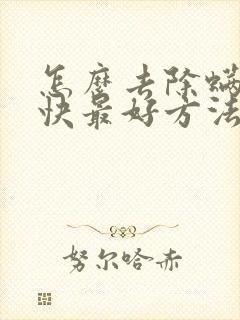 怎麼去除螨
快最好方法
努尔哈赤